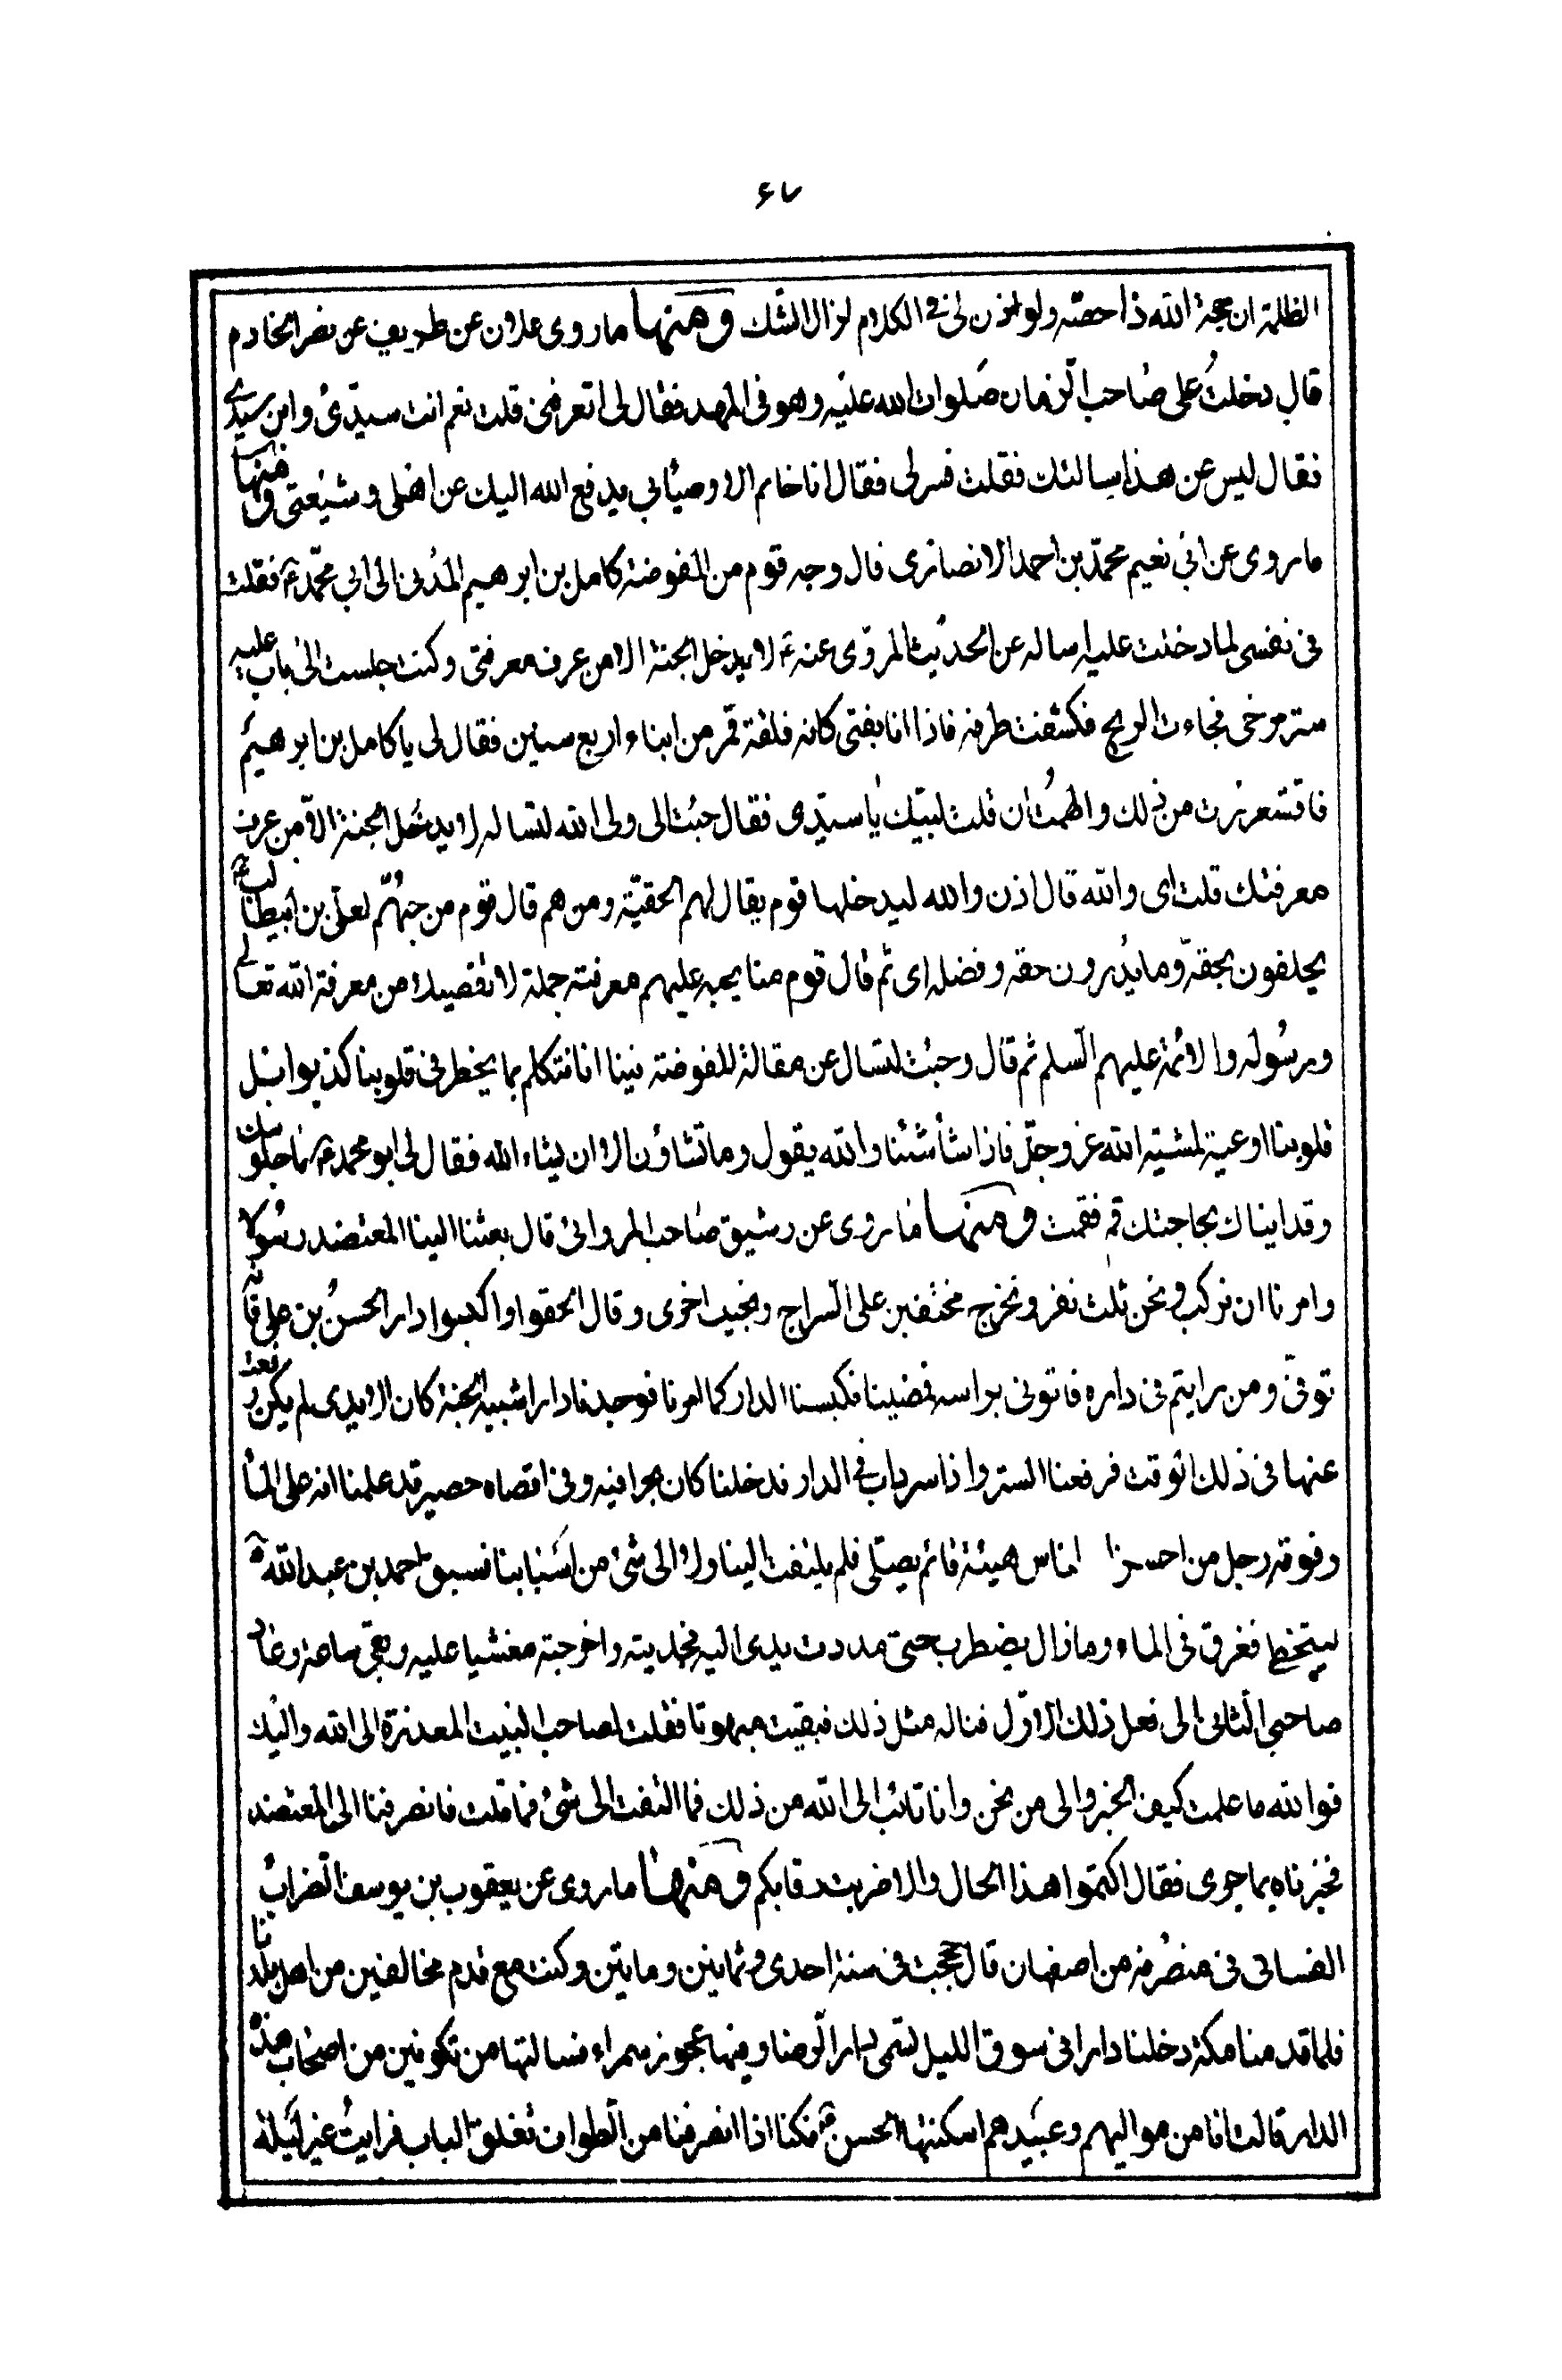 ٦٧
الظلمة ان حجة الله داحضة ولو اذن لي في الكلام لزال الشك ومنها ما روى علان عن طريف عن نصر الخادم
قال دخلتُ على صاحب الزمان صلوات الله عليه وهو في المهد فقال لي اتعرفني قلت نعم انت سيدي وابن سيدي
فقال ليس عن هذا سالتك فقلت فسر لي فقال انا خاتم الاوصياء بي يدفع الله البلاء عن اهلي وشيعتي ومنها
ما روى عن ابي نعيم محمد بن احمد الانصاري قال وجه قوم من المفوضة كامل بن ابرهيم المدني الى ابي محمد ع فقلت
في نفسي لما دخلت عليه اساله عن الحديث المروي عنه ع لا يدخل الجنة الا من عرف معرفتي وكنت جلست الى باب عليه
ستر مرخى فجاءت الريح فكشفت طرفه فاذا انا بفتى كانه فلقة قمر من ابناء اربع سنين فقال لي يا كامل بن ابرهيم
فاقشعررت من ذلك والهمت ان قلت لبيك يا سيدي فقال جئت الى ولي الله لتساله لا يدخل الجنة الا من عرف
معرفتك قلت اي والله قال اذن والله ليدخلها قوم يقال لهم الحقية ومن هم قال قوم من حبهم لعلي بن ابيطالب ع
يحلفون بحقه وما يدرون حقه وفضله اي ثم قال قوم منا يجب عليهم معرفته جملة لا تفصيلا من معرفة الله تعالى
ورسوله والائمة عليهم السلم ثم قال وجئت لتسال عن مقالة المفوضة فينا انا نتكلم بما يخطر في قلوبنا كذبوا بل
قلوبنا اوعية لمشية الله عز وجل فاذا شأ شئنا والله يقول وما تشاؤن الا ان يشاء الله فقال لي ابو محمد ع ما جلوسك
وقد ابناك بحاجتك قم فقمت ومنها ما روى عن رشيق صاحب المروانى قال بعثنا الينا المعتضد رسولا
وامرنا ان نركب ونحن ثلث نفر ونخرج مخففين على السراج ونجيب اخرى وقال الحقوا واكبسوا دار الحسن بن علي فانه
توفى ومن رايتم في داره فاتوني براسه فمضينا فكبسنا الدار كما امرنا فوجدنا دارا شبيه الجنة كان الايدي لم يكن رفعت
عنها في ذلك الوقت فرفعنا الستر واذا سرداب في الدار فدخلنا كان بحرا فيه وفي اقصاه حصير قد علمنا انه على الما
وفوقه رجل من احسن الناس هيئة قائم يصلى فلم يلتفت الينا ولا الى شئ من اسبابنا فسبق احمد بن عبد الله
ليتخطى فغرق في الماء وما زال يضطرب حتى مددت يدي اليه فجذبته واخرجته مغشيا عليه وبقي ساعة وعاد
صاحبي الثاني الى فعل ذلك الاول فناله مثل ذلك فبقيت مبهوتا فقلت لصاحب البيت المعذرة الى الله واليك
فوالله ما علمت كيف الخبر والى من نحن وانا تائب الى الله من ذلك فما التفت الى شئ مما قلت فانصرفنا الى المعتضد
فخبرناه بما جرى فقال اكتموا هذا الحال والا ضربت رقابكم ومنها ما روى عن يعقوب بن يوسف الضراب
الغساني في منصرفه من اصفهان قال حججت في سنة احدى وثمانين ومايتين وكنت مع قوم مخالفين من اهل بلدنا
فلما قدمنا مكة دخلنا دارا في سوق الليل تسمى بدار الرضا وفيها عجوز سمراء فسالتها من تكونين من اصحاب هذه
الدار قالت انا من مواليهم وعبيدهم اسكنتها الحسن ع فكنا اذا انصرفنا من الطواف نغلق الباب فرايت غير ليلة